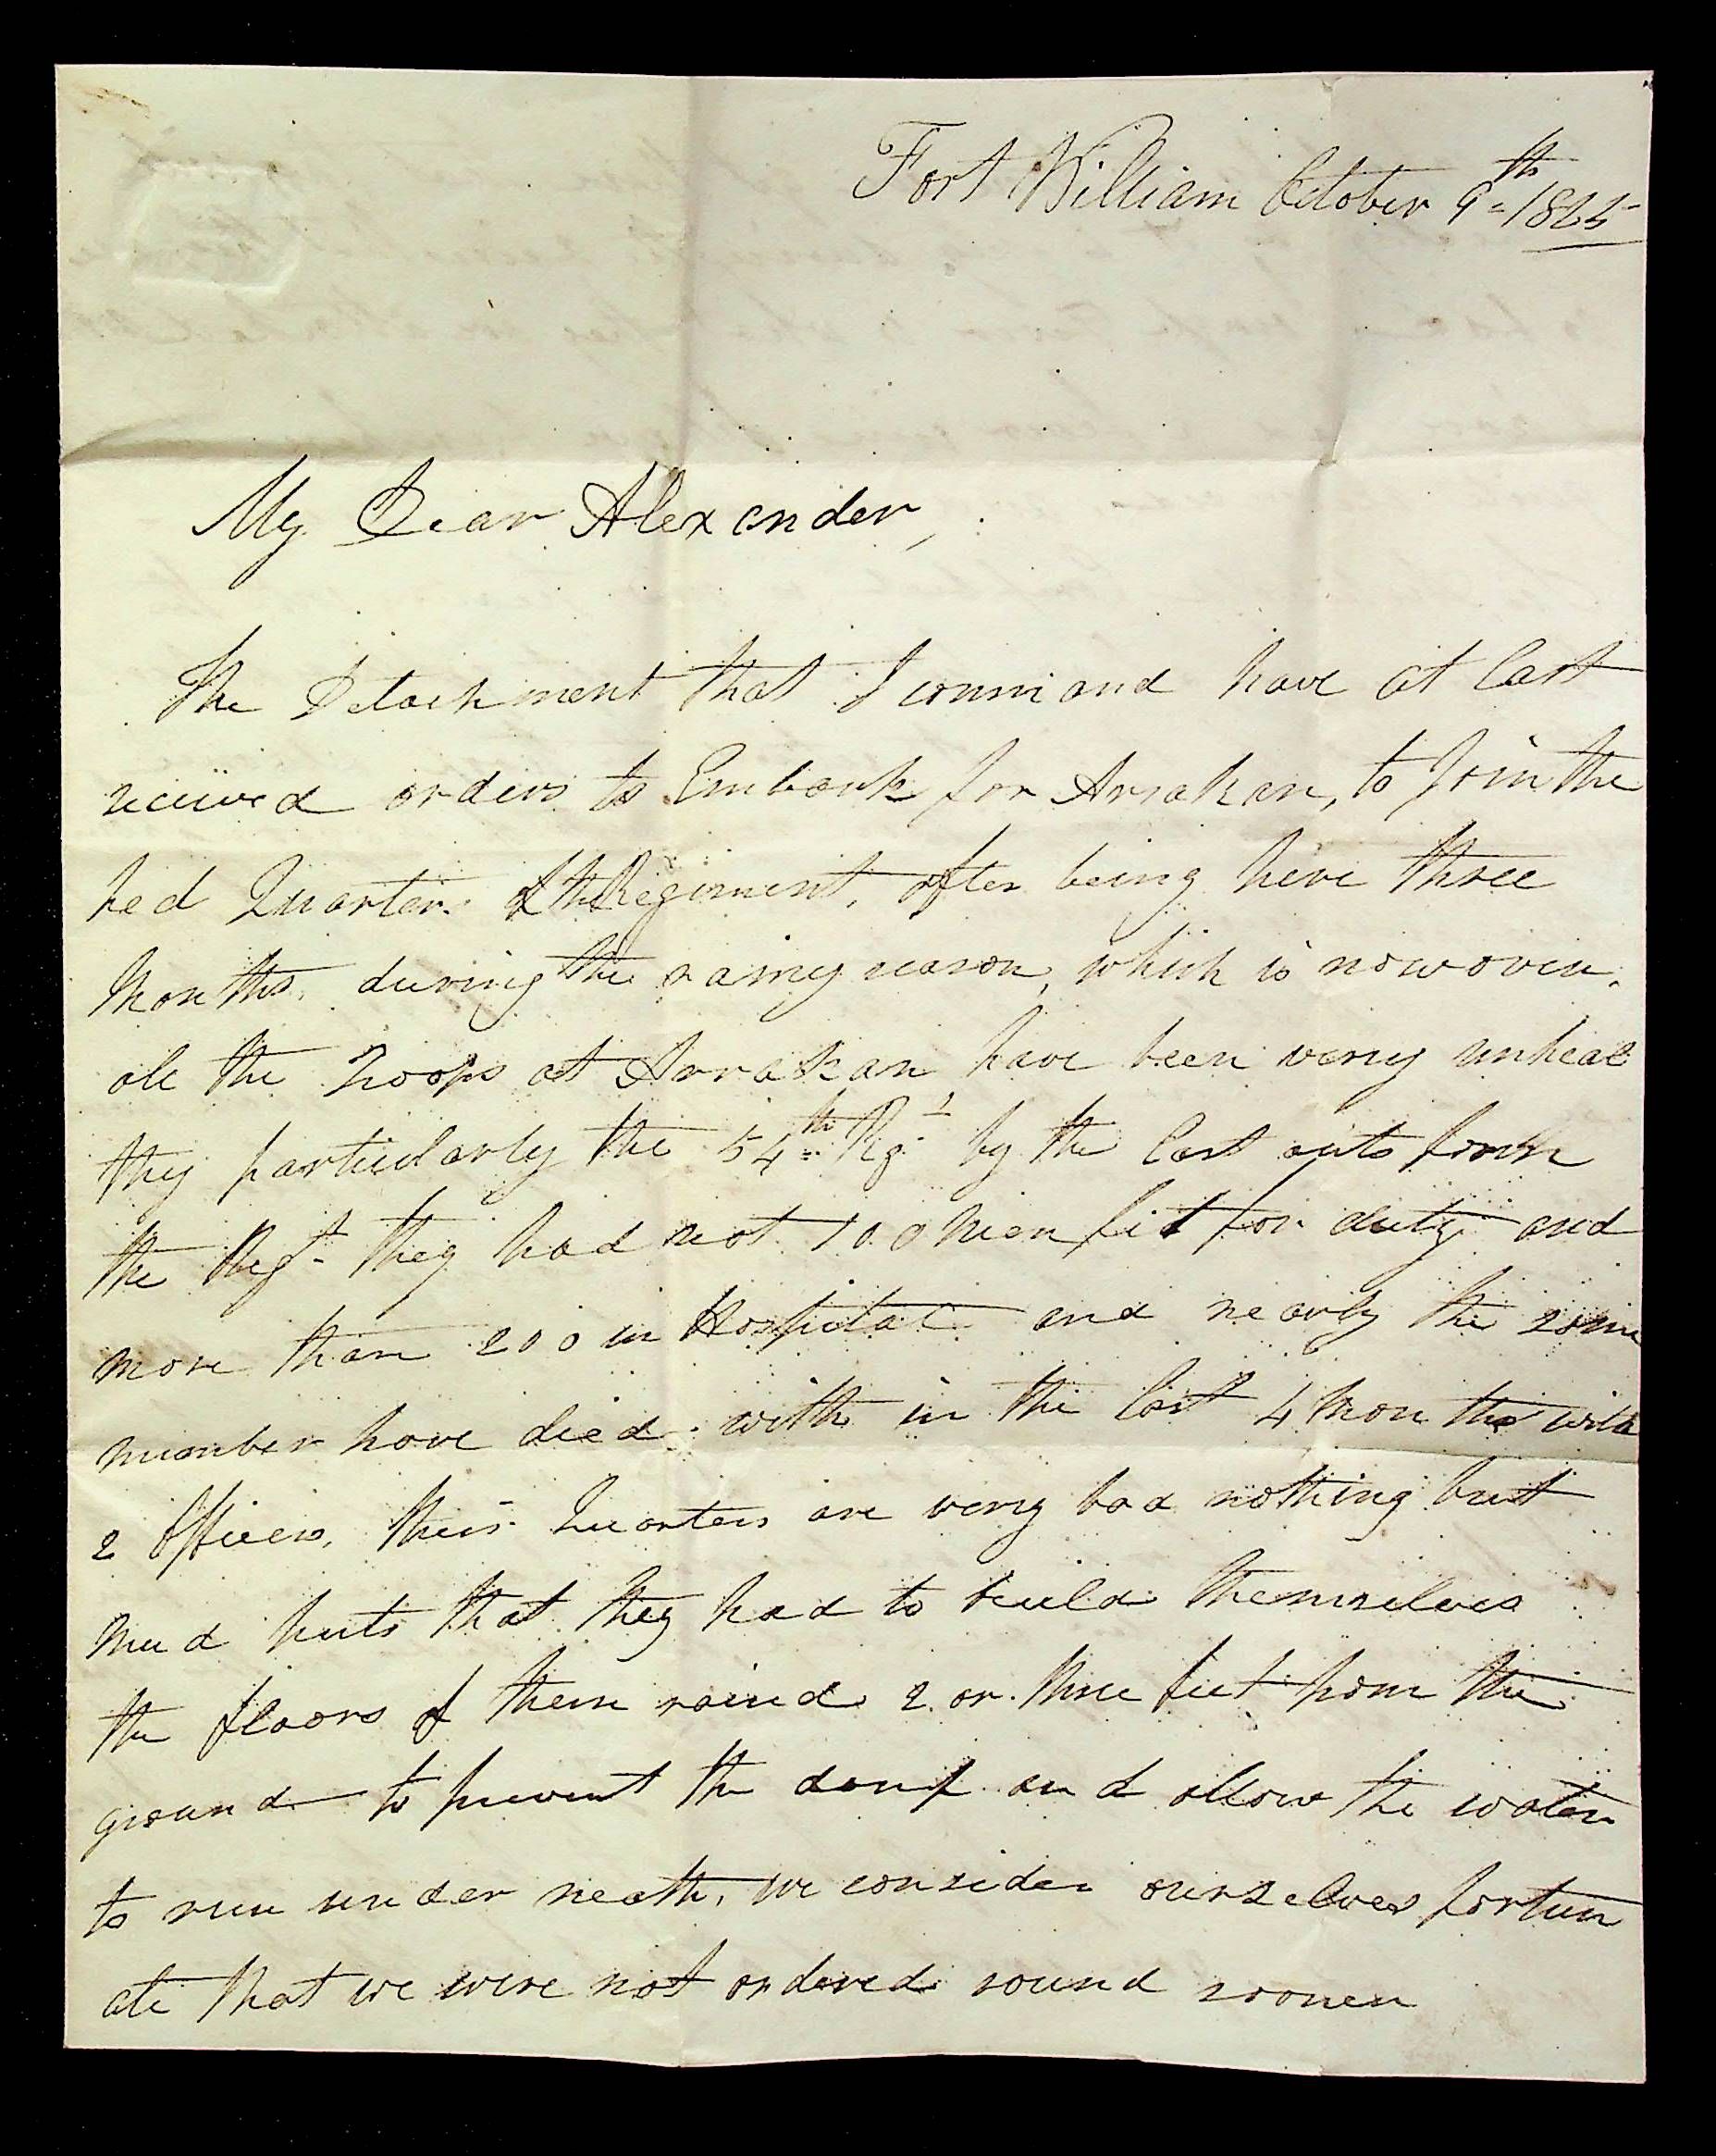 Fort William October 9th 1825
My Dear Alexander,
The Detachment that I command have at last
received orders to Embark for Arrakan, to Join the
hed Quarters of the Regiment, after being here three
Months, during the rainy season, which is now over.
all the Troops at Arrakan have been very unheal
thy particularly the 54th Rgt by the last from
the Regt they had not 100 Men fit for duty and
more than 200 in Hospital and nearly the same
number have died with in the last 4 Months with
2 Officers, their Quarters are very bad nothing but
Mud huts that they had to build themselves
the floors of them raised 2 or three feet from the
ground to prevent the damp and allow the water
to run under neath, we consider ourselves fortun
ate that we were not ordered round sooner